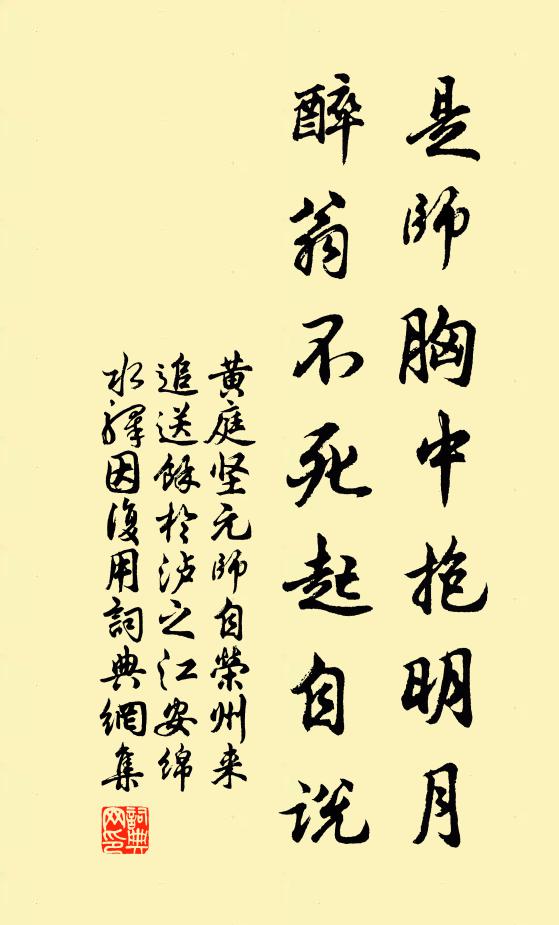 是师胸中抱明月
醉翁不死起自说
黄庭坚元师自荣州来
追送馀於泸之江安绵
水驿因復用詞典網集
詞典網印